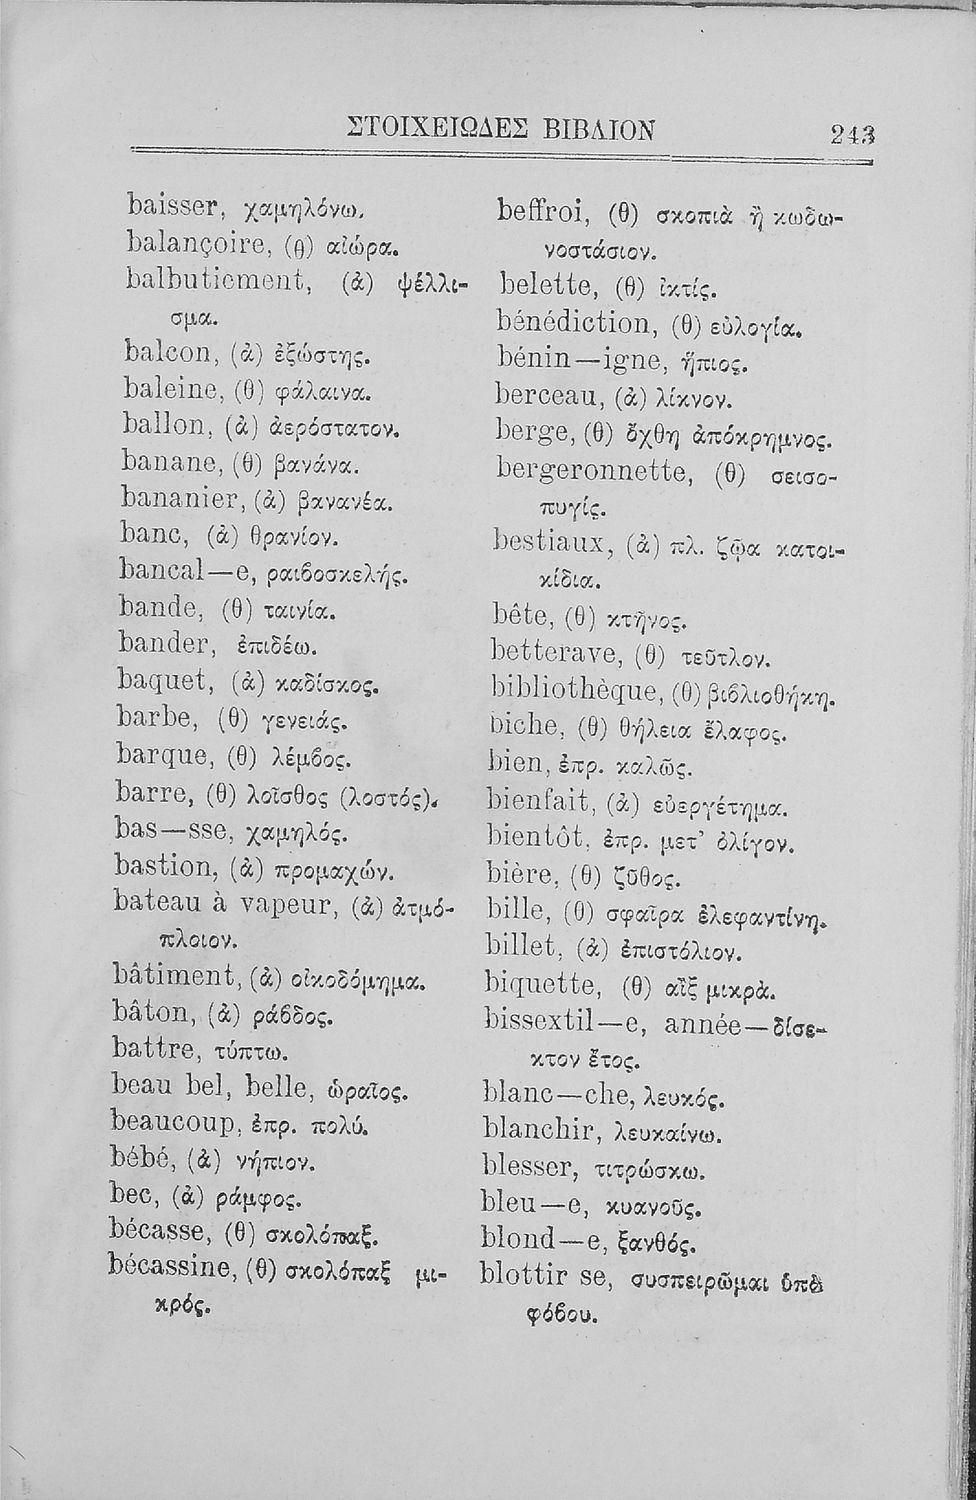 ΣΤΟΙΧΕΙΩΔΕΣ ΒΙΒΛΙΟΝ 243
baisser, χαμηλόνω.
balançoire, (θ) αἰώρα.
balbutiement, (ἀ) ψέλλι-
σμα.
balcon, (ἀ) ἐξώστης.
baleine, (θ) φάλαινα.
ballon, (ἀ) ἀερόστατον.
banane, (θ) βανάνα.
bananier, (ἀ) βανανέα.
banc, (ἀ) θρανίον.
bancal—e, ραιϐοσκελής.
bande, (θ) ταινία.
bander, ἐπιδέω.
baquet, (ἀ) καδίσκος.
barbe, (θ) γενειάς.
barque, (θ) λέμϐος.
barre, (θ) λοῖσθος (λοστός).
bas—sse, χαμηλός.
bastion, (ἀ) προμαχών.
bateau à vapeur, (ἀ) ἀτμό-
πλοιον.
bâtiment, (ἀ) οἰκοδόμημα.
bâton, (ἀ) ράϐδος.
battre, τύπτω.
beau bel, belle, ὡραῖος.
beaucoup, ἐπρ. πολύ.
bébé, (ἀ) νήπιον.
bec, (ἀ) ράμφος.
bécasse, (θ) σκολόπαξ.
bécassine, (θ) σκολόπαξ μι-
κρός.
beffroi, (θ) σκοπιὰ ἢ κωδω-
νοστάσιον.
belette, (θ) ἰκτίς.
bénédiction, (θ) εὐλογία.
bénin—igne, ἤπιος.
berceau, (ἀ) λίκνον.
berge, (θ) ὄχθη ἀπόκρημνος.
bergeronnette, (θ) σεισο-
πυγίς.
bestiaux, (ἀ) πλ. ζῷα κατοι-
κίδια.
bête, (θ) κτῆνος.
betterave, (θ) τεῦτλον.
bibliothèque, (θ) βιϐλιοθήκη.
biche, (θ) θήλεια ἔλαφος.
bien, ἐπρ. καλῶς.
bienfait, (ἀ) εὐεργέτημα.
bientôt, ἐπρ. μετ’ ὀλίγον.
bière, (θ) ζῦθος.
bille, (θ) σφαῖρα ἐλεφαντίνη.
billet, (ἀ) ἐπιστόλιον.
biquette, (θ) αἲξ μικρὰ.
bissextil—e, année—δίσε-
κτον ἔτος.
blanc—che, λευκός.
blanchir, λευκαίνω.
blesser, τιτρώσκω.
bleu—e, κυανοῦς.
blond—e, ξανθός.
blottir se, συσπειρῶμαι ὑπὸ
φόϐου.